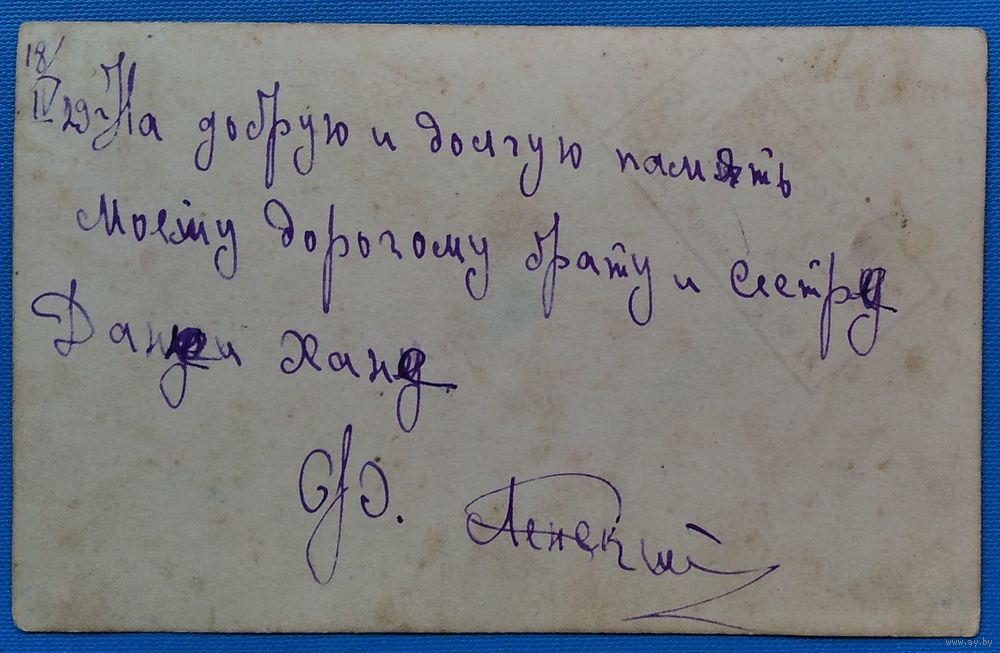 18/
IV 29 г На добрую и долгую память
Моему дорогому брату и сестре
Дане и Хане
Ю. Ленский
www.ay.by